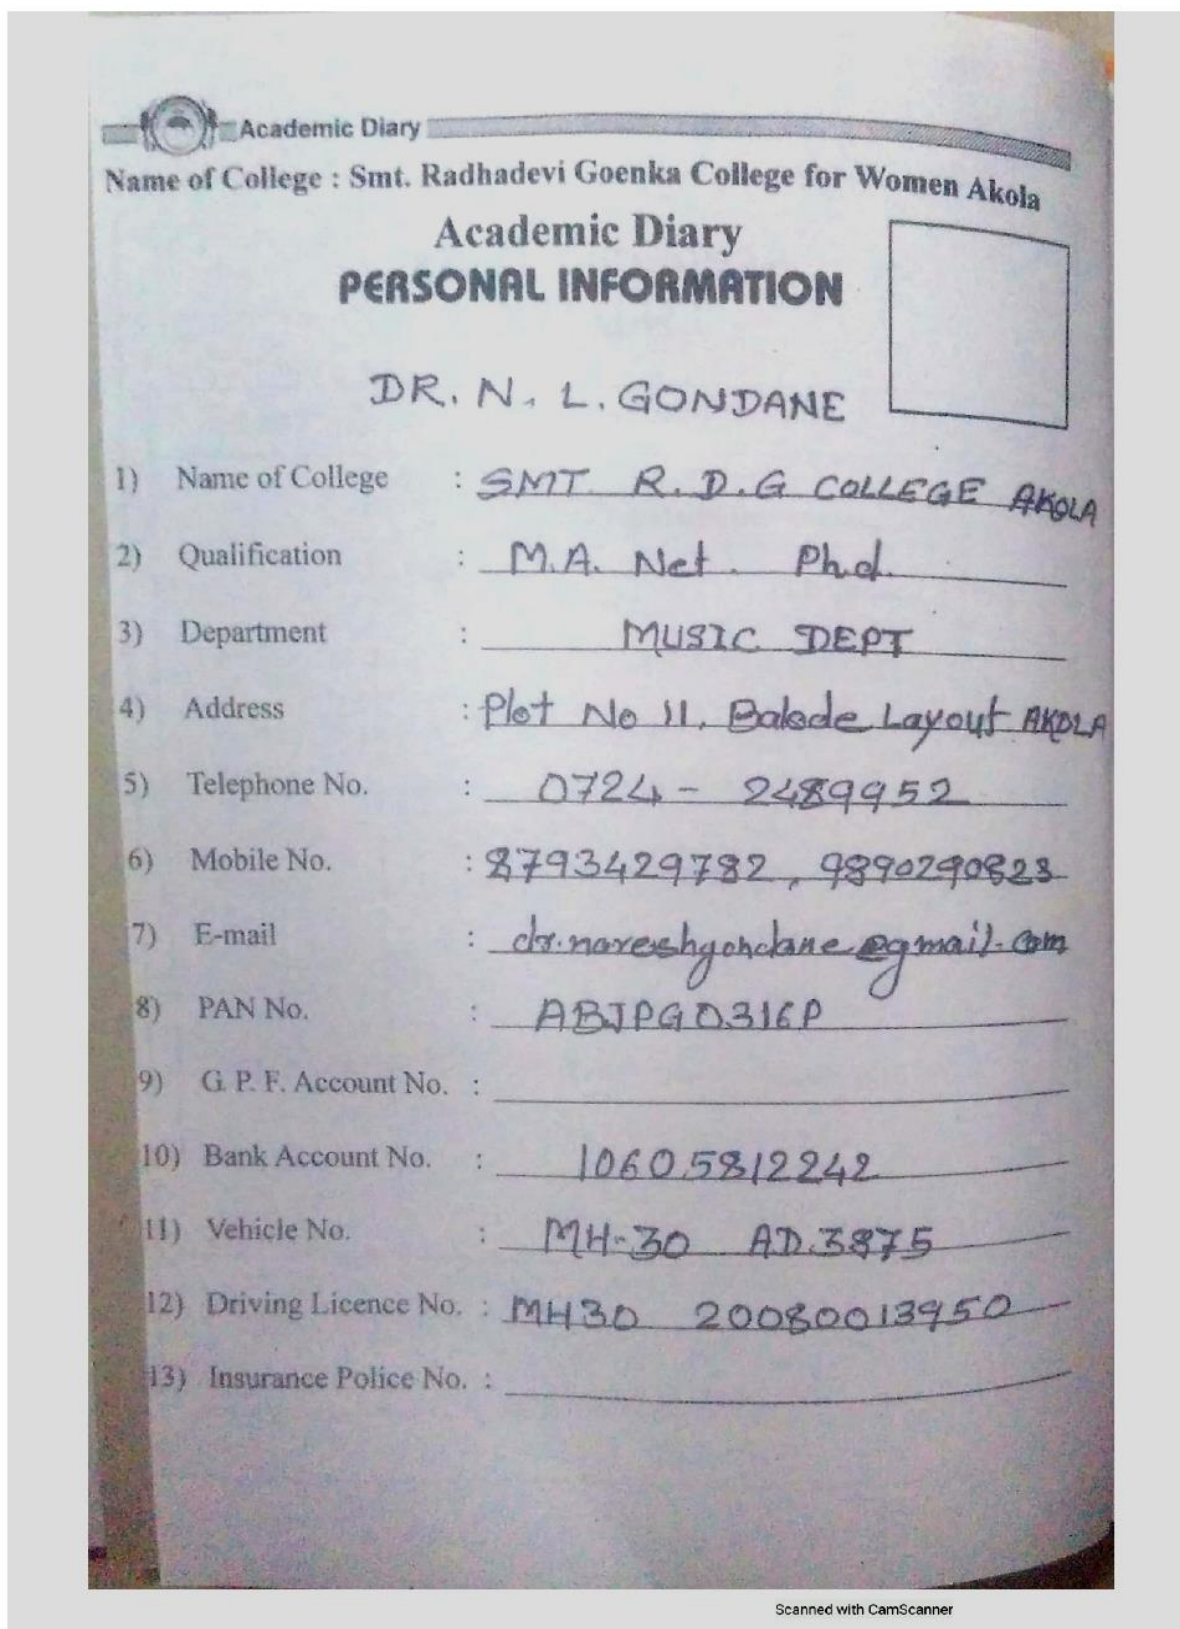 Academic Diary
Name of College : Smt. Radhadevi Goenka College for Women Akola
Academic Diary
PERSONAL INFORMATION
DR. N. L. GONDANE
1) Name of College : SMT R.D.G COLLEGE AKOLA
2) Qualification : M.A. Net. Ph.d.
3) Department : MUSIC DEPT
4) Address : Plot No 11, Balode Layout AKOLA
5) Telephone No. : 0724 - 2489952
6) Mobile No. : 8793429782, 9890290823
7) E-mail : dr.nareshgondane@gmail.com
8) PAN No. : ABJPG0316P
9) G. P. F. Account No. :
10) Bank Account No. : 10605812242
11) Vehicle No. : MH-30 AD.3875
12) Driving Licence No. : MH30 20080013950
13) Insurance Police No. :
Scanned with CamScanner